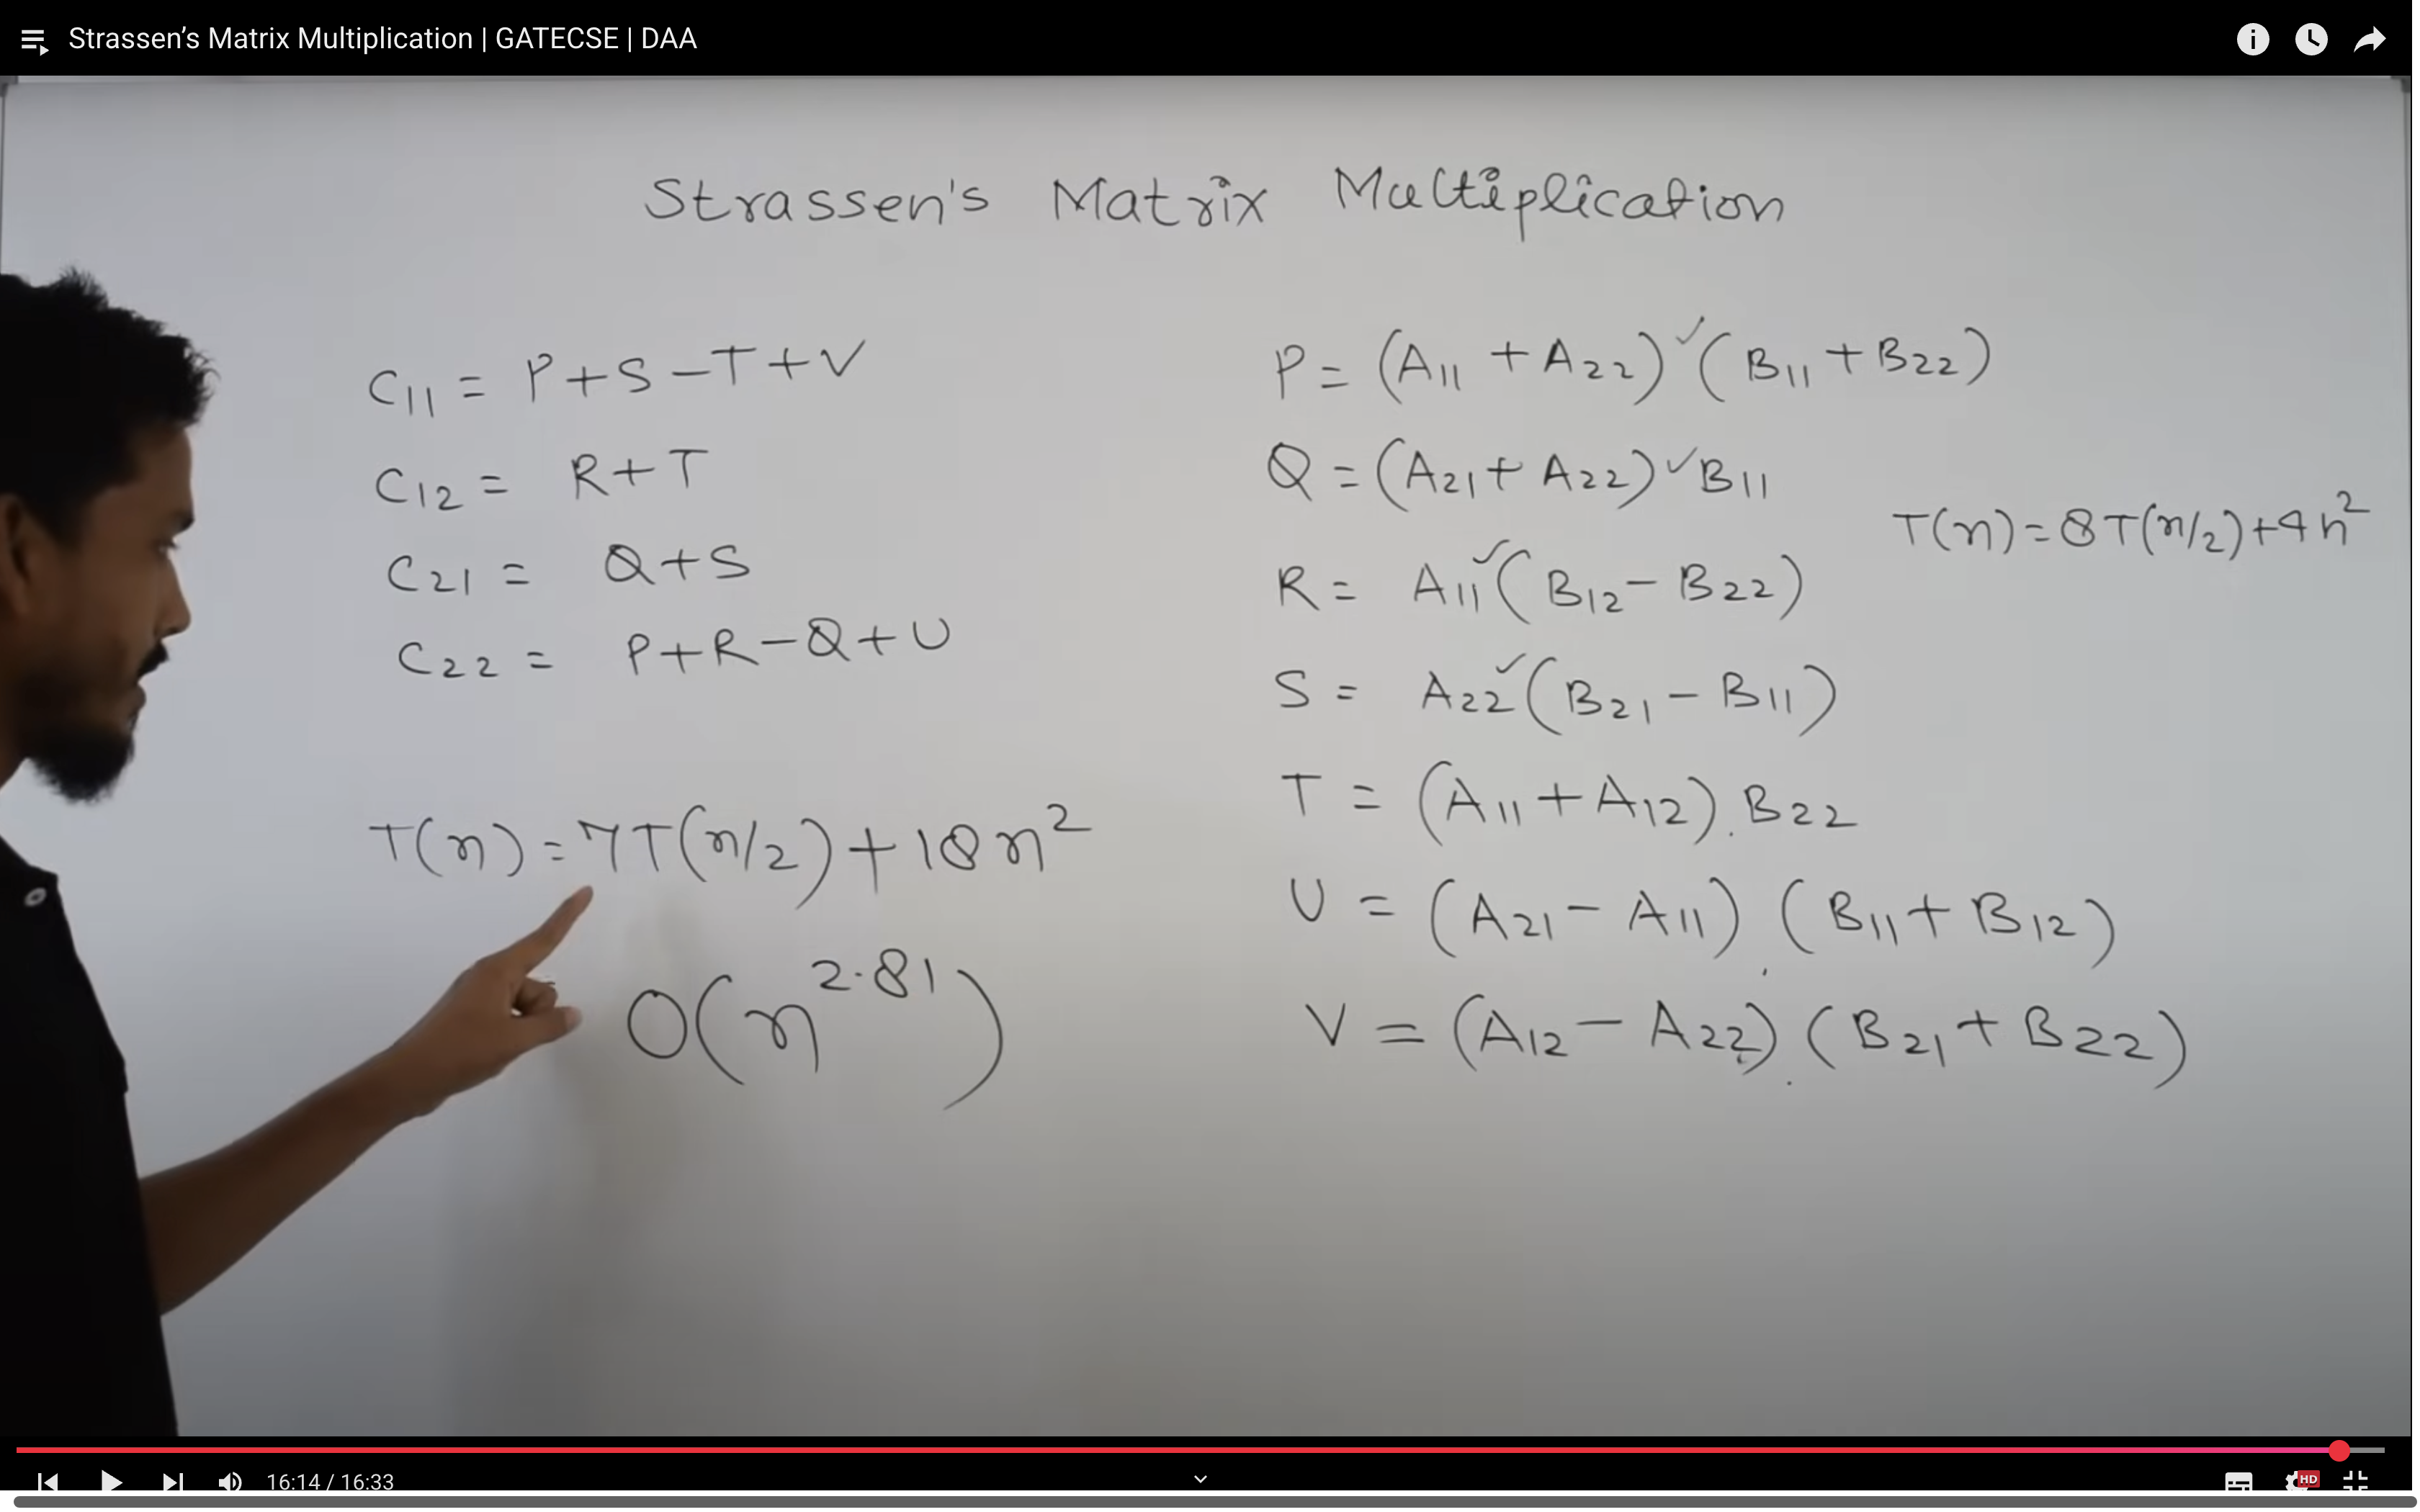 Strassen’s Matrix Multiplication | GATECSE | DAA
Strassen's Matrix Multiplication
C11 = P+S-T+V
C12 = R+T
C21 = Q+S
C22 = P+R-Q+U
T(n)=7T(n/2)+18n²
O(n^2.81)
P= (A11 + A22) ✓ (B11 + B22)
Q = (A21 + A22) ✓ B11
R = A11 ✓ (B12 - B22)
S = A22 ✓ (B21 - B11)
T = (A11 + A12) . B22
U = (A21 - A11) (B11 + B12)
V = (A12 - A22) . (B21 + B22)
T(n)=8T(n/2)+4n²
16:14 / 16:33
HD